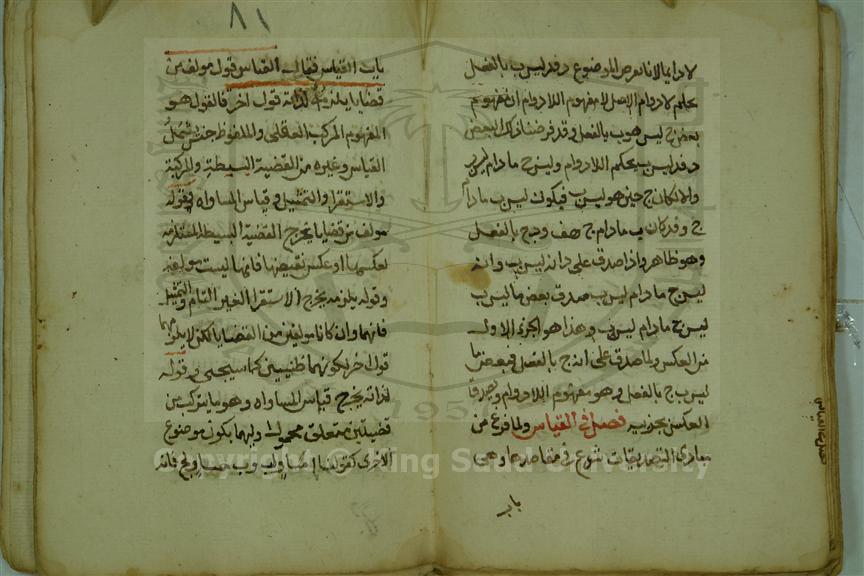 لا دايما لانا نفرض الموضوع د فد ليس ب بالفعل
بحكم لا دوام الاصل لا مفهوم اللادوام ان مفهوم
بعض ج ليس هو ب بالفعل وقد فرضنا ذلك البعض
د فد ليس ب بحكم اللادوام وليس ج ما دام ليس ب
والا لكان ج حين هو ليس ب فيكون ليس ب ما دام
ج وقد كان ب ما دام ج هف و د ج بالفعل
وهو ظاهر واذا صدق على د انه ليس ب وانه
ليس ج ما دام ليس ب صدق بعض ما ليس ب
ليس ج ما دام ليس ب وهذا هو الجزء الاول
من العكس ولما صدق على انه ج بالفعل فبعض ما
ليس ب ج بالفعل وهو مفهوم اللادوام ويصدق
العكس بجزييه فصل في القياس ولما فرغ من
مبادى التصديقات شرع في مقاصدها وهي
باب
فصل في القياس
٨١
باب القياس فقال القياس قول مولف من
قضايا يلزمه لذاته قول اخر فالقول هو
المفهوم المركب العقلي والملفوظ جنس شمل
القياس وغيره من القضية البسيطة والمركبة
والاستقرا والتمثيل وقياس المساواه وقوله
مولف من قضايا يخرج القضية البسيطة المستلزمة
لعكسها او عكس نقيضها فانها ليست مولفة
وقوله يلزمه يخرج الاستقرا الغير التام والتمثيل
فانهما وان كانا مولفين من القضايا لكن لا يلزمهما
قول اخر لكونهما ظنيين كما سيجي وقوله
لذاته يخرج قياس المساواه وهو ما يتركب من
قضيتين متعلق محمول اوليهما يكون موضوع
الاخرى كقولنا ا مساو لب و ب مساو لج فانه
Copyright © King Saud University
1957